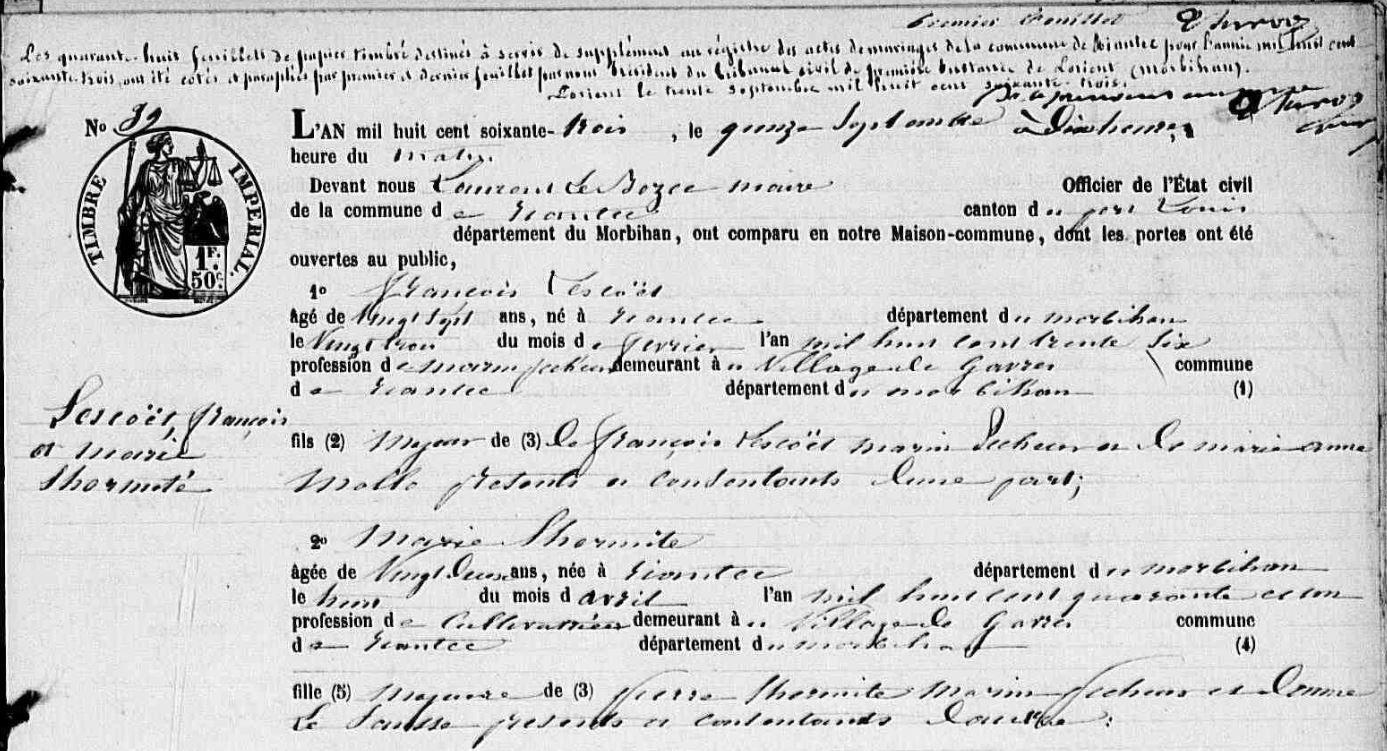 Premier feuillet
Les quarante-huit feuillets de papier timbré destinés à servir de supplément au régistre des actes de mariages de la commune de Riantec pour l'année mil huit cent
soixante trois, ont été cotés et paraphés par premier et dernier feuillet par nous Président du Tribunal civil de première Instance de Lorient (Morbihan).
Lorient le trente Septembre mil huit cent soixante-trois.
No 39
L'AN mil huit cent soixante-trois, le quinze Septembre à dix heures
heure du matin.
Devant nous Laurent Le Bozec maire Officier de l'État civil
de la commune de Riantec canton du port Louis
département du Morbihan, ont comparu en notre Maison-commune, dont les portes ont été
ouvertes au public,
TIMBRE IMPERIAL
1F. 50c.
1o François Lescoët
Agé de Vingt Sept ans, né à Riantec département du morbihan
le Vingt trois du mois de fevrier l'an mil huit cent trente Six
profession de marin pecheur demeurant à u Village de Gavres commune
de Riantec département du morbihan (1)
Lescoët, françois
et marie
Lhermite
fils (2) Majeur de (3) de françois Lescoët marin Pecheur et de marie anne
Mollo présents et consentants d'une part;
2o Marie Lhermite
âgée de Vingt Deux ans, née à Riantec département du morbihan
le huit du mois d avril l'an mil huit cent quarante et un
profession de Cultivatrice demeurant à u Village de Gavres commune
de Riantec département du morbihan (4)
fille (5) majeure de (3) pierre Lhermite Marin pecheur et
Le présents et consentants d'autre: